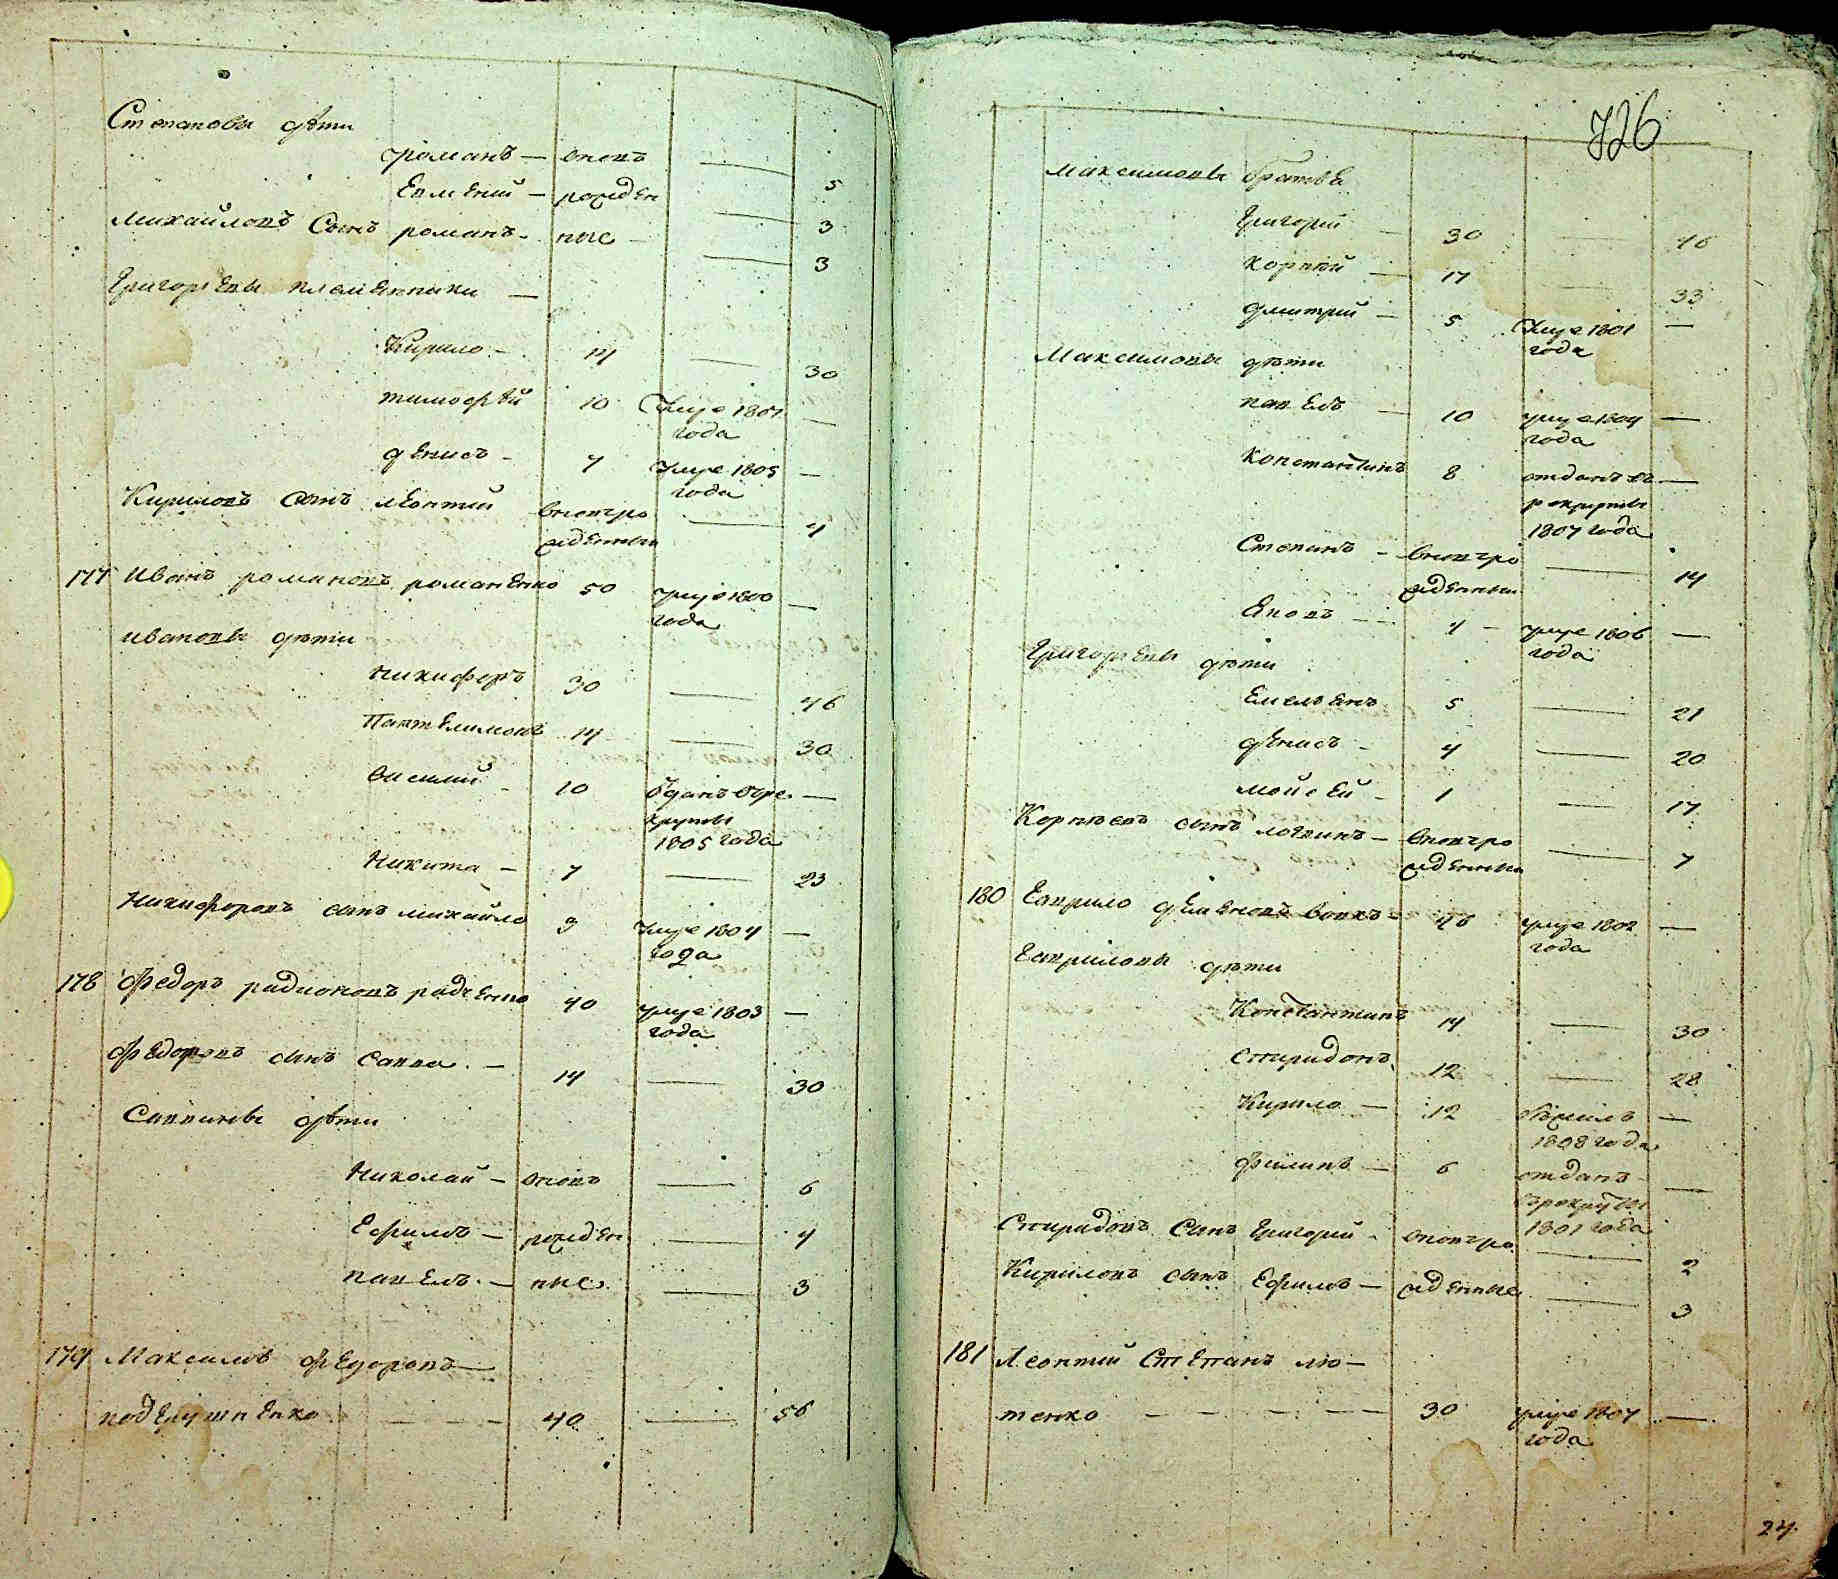 Степановы дѣти
романъ — вновь — 5
Евмений — рожден — 3
Михайловъ Сынъ романъ — ные — 3
Григорьевы племянники —
Кирило — 14 — 30
тимофѣй 10 Умре 1801 —
года
денисъ — 4 Умре 1805 —
года
Кириловъ сынъ леонтий вновъро — 4
жденный
177 Иванъ романовъ романенко 50 умре 1800 —
года
ивановы дѣти
никифоръ 30 — 46
Пантелимонъ 14 — 30
василий — 10 Ѿданъ въре —
круты
1805 года
Никита — 7 — 23
Никифоровъ сынъ михайло 3 Умре 1804 —
года
178 Федоръ радионовъ радченко 40 умре 1803 —
года
Федоровъ сынъ Савва — 14 — 30
Саввины дѣти
Николай — вновь — 6
Ефимъ — рожден — 4
павелъ — ные — 3
179 Максимъ Федоровъ —
подлушненко — — — 40 — 56
726
Максимовы братья
Григорий — 30 — 46
корний — 17 — 33
дмитрий — 5 Умре 1801 —
года
Максимовы дѣти
павелъ — 10 умре 1804 —
года
константинъ 8 отданъ въ —
рекруты
1807 года
Степанъ — вновъро — 14
жденный
Яковъ — 4 — умре 1806 —
года
Григорьевы дѣти
Емельянъ 5 — 21
денисъ — 4 — 20
мойсей — 1 — 17
Корнѣевъ сынъ логвинъ — вновъро — 7
жденный
180 Гаврило деменовъ вовкъ — 46 умре 1802 —
года
Гавриловы дѣти
Константинъ 14 — 30
спиридонъ 12 — 28
Кирило — 12 —
1808 года
филипъ — 6 отданъ —
въ рекруты
1801 года
Спиридовъ Сынъ Григорий — вновъро — 2
Кириловъ сынъ Ефимъ — жденные — 3
181 Леонтий Степанъ лю —
тенко — — — — — 30 умре 1807 —
года
24.